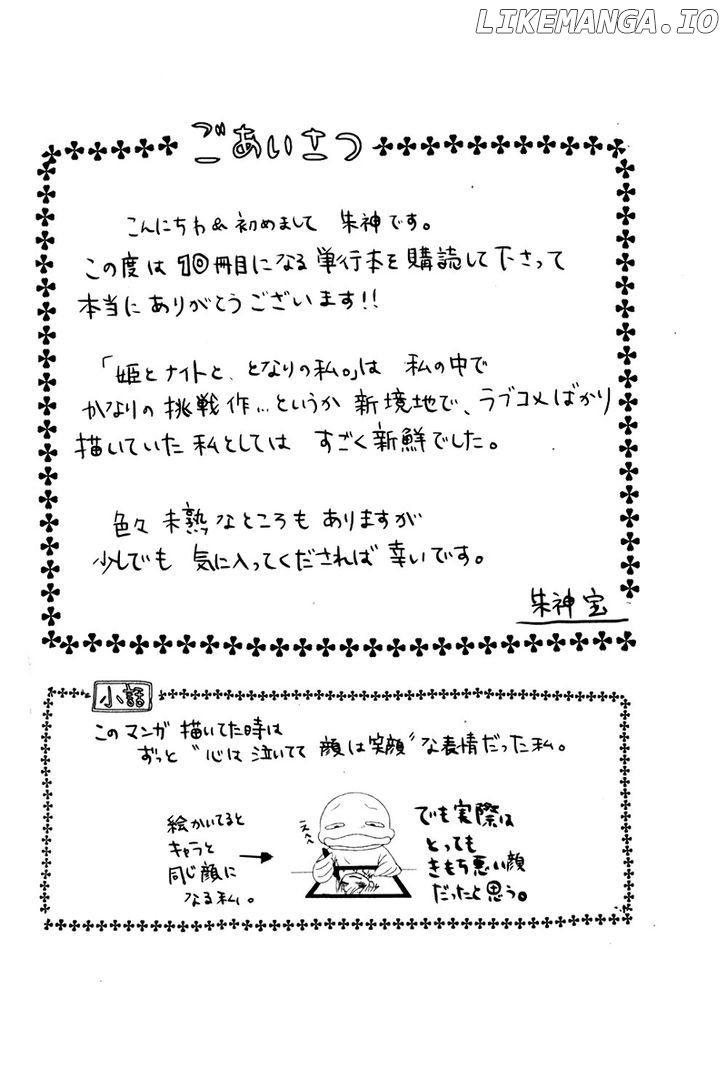 LIKEMANGA.IO
ごあいさつ
こんにちわ&初めまして 朱神です。
この度は10冊目になる単行本を購読して下さって
本当にありがとうございます!!
「姫とナイトと、となりの私。」は 私の中で
かなりの挑戦作…というか 新境地で、ラブコメばかり
描いていた私としては すごく新鮮でした。
色々 未熟なところも ありますが
少しでも 気に入ってくだされば 幸いです。
朱神宝
小話
このマンガ 描いてた時は
ずっと “心は泣いてて 顔は笑顔” な表情だった私。
絵かいてると
キャラと
同じ顔に
なる私。
えへへ
でも実際は
とっても
きもち悪い顔
だったと思う。